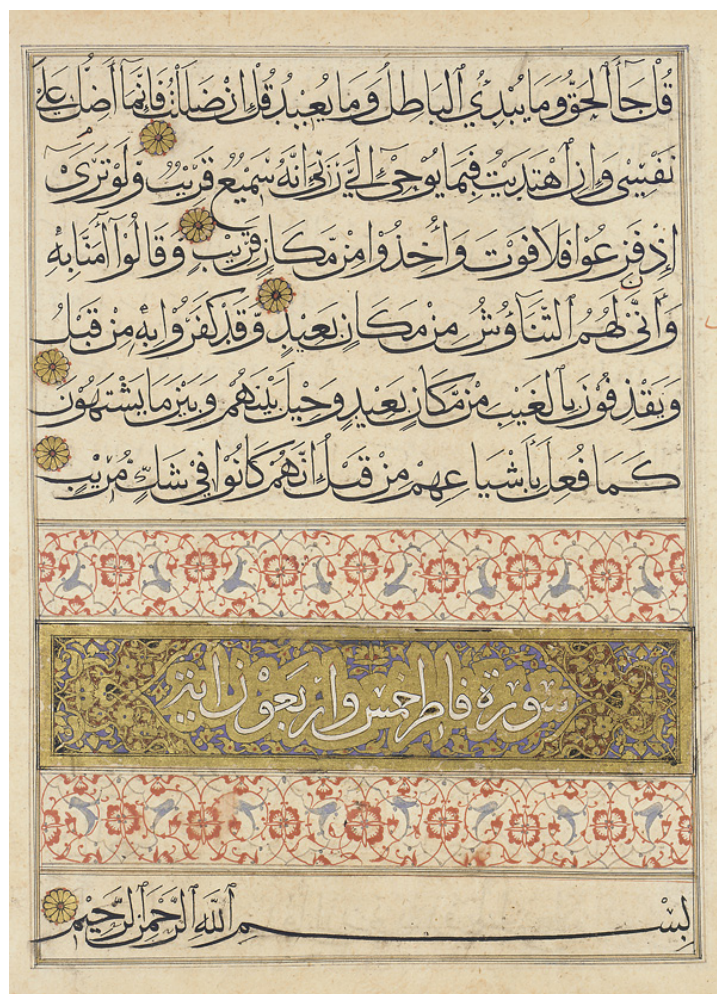 قُلْ جَآءَ ٱلْحَقُّ وَمَا يُبْدِئُ ٱلْبَاطِلُ وَمَا يُعِيدُ قُلْ إِنْ ضَلَلْتُ فَإِنَّمَآ أَضِلُّ عَلَىٰ
نَفْسِى وَإِنِ ٱهْتَدَيْتُ فَبِمَا يُوحِىٓ إِلَىَّ رَبِّىٓ إِنَّهُ سَمِيعٌ قَرِيبٌ وَلَوْ تَرَىٰٓ
إِذْ فَزِعُوا فَلَا فَوْتَ وَأُخِذُوا مِنْ مَكَانٍ قَرِيبٍ وَقَالُوٓا آمَنَّا بِهِ
وَأَنَّىٰ لَهُمُ ٱلتَّنَاؤُشُ مِنْ مَكَانٍ بَعِيدٍ وَقَدْ كَفَرُوا بِهِ مِنْ قَبْلُ
وَيَقْذِفُونَ بِٱلْغَيْبِ مِنْ مَكَانٍ بَعِيدٍ وَحِيلَ بَيْنَهُمْ وَبَيْنَ مَا يَشْتَهُونَ
كَمَا فُعِلَ بِأَشْيَاعِهِمْ مِنْ قَبْلُ إِنَّهُمْ كَانُوا فِى شَكٍّ مُرِيبٍ
سورة فاطر خمس واربعون اية
بِسْمِ ٱللَّهِ ٱلرَّحْمَٰنِ ٱلرَّحِيمِ